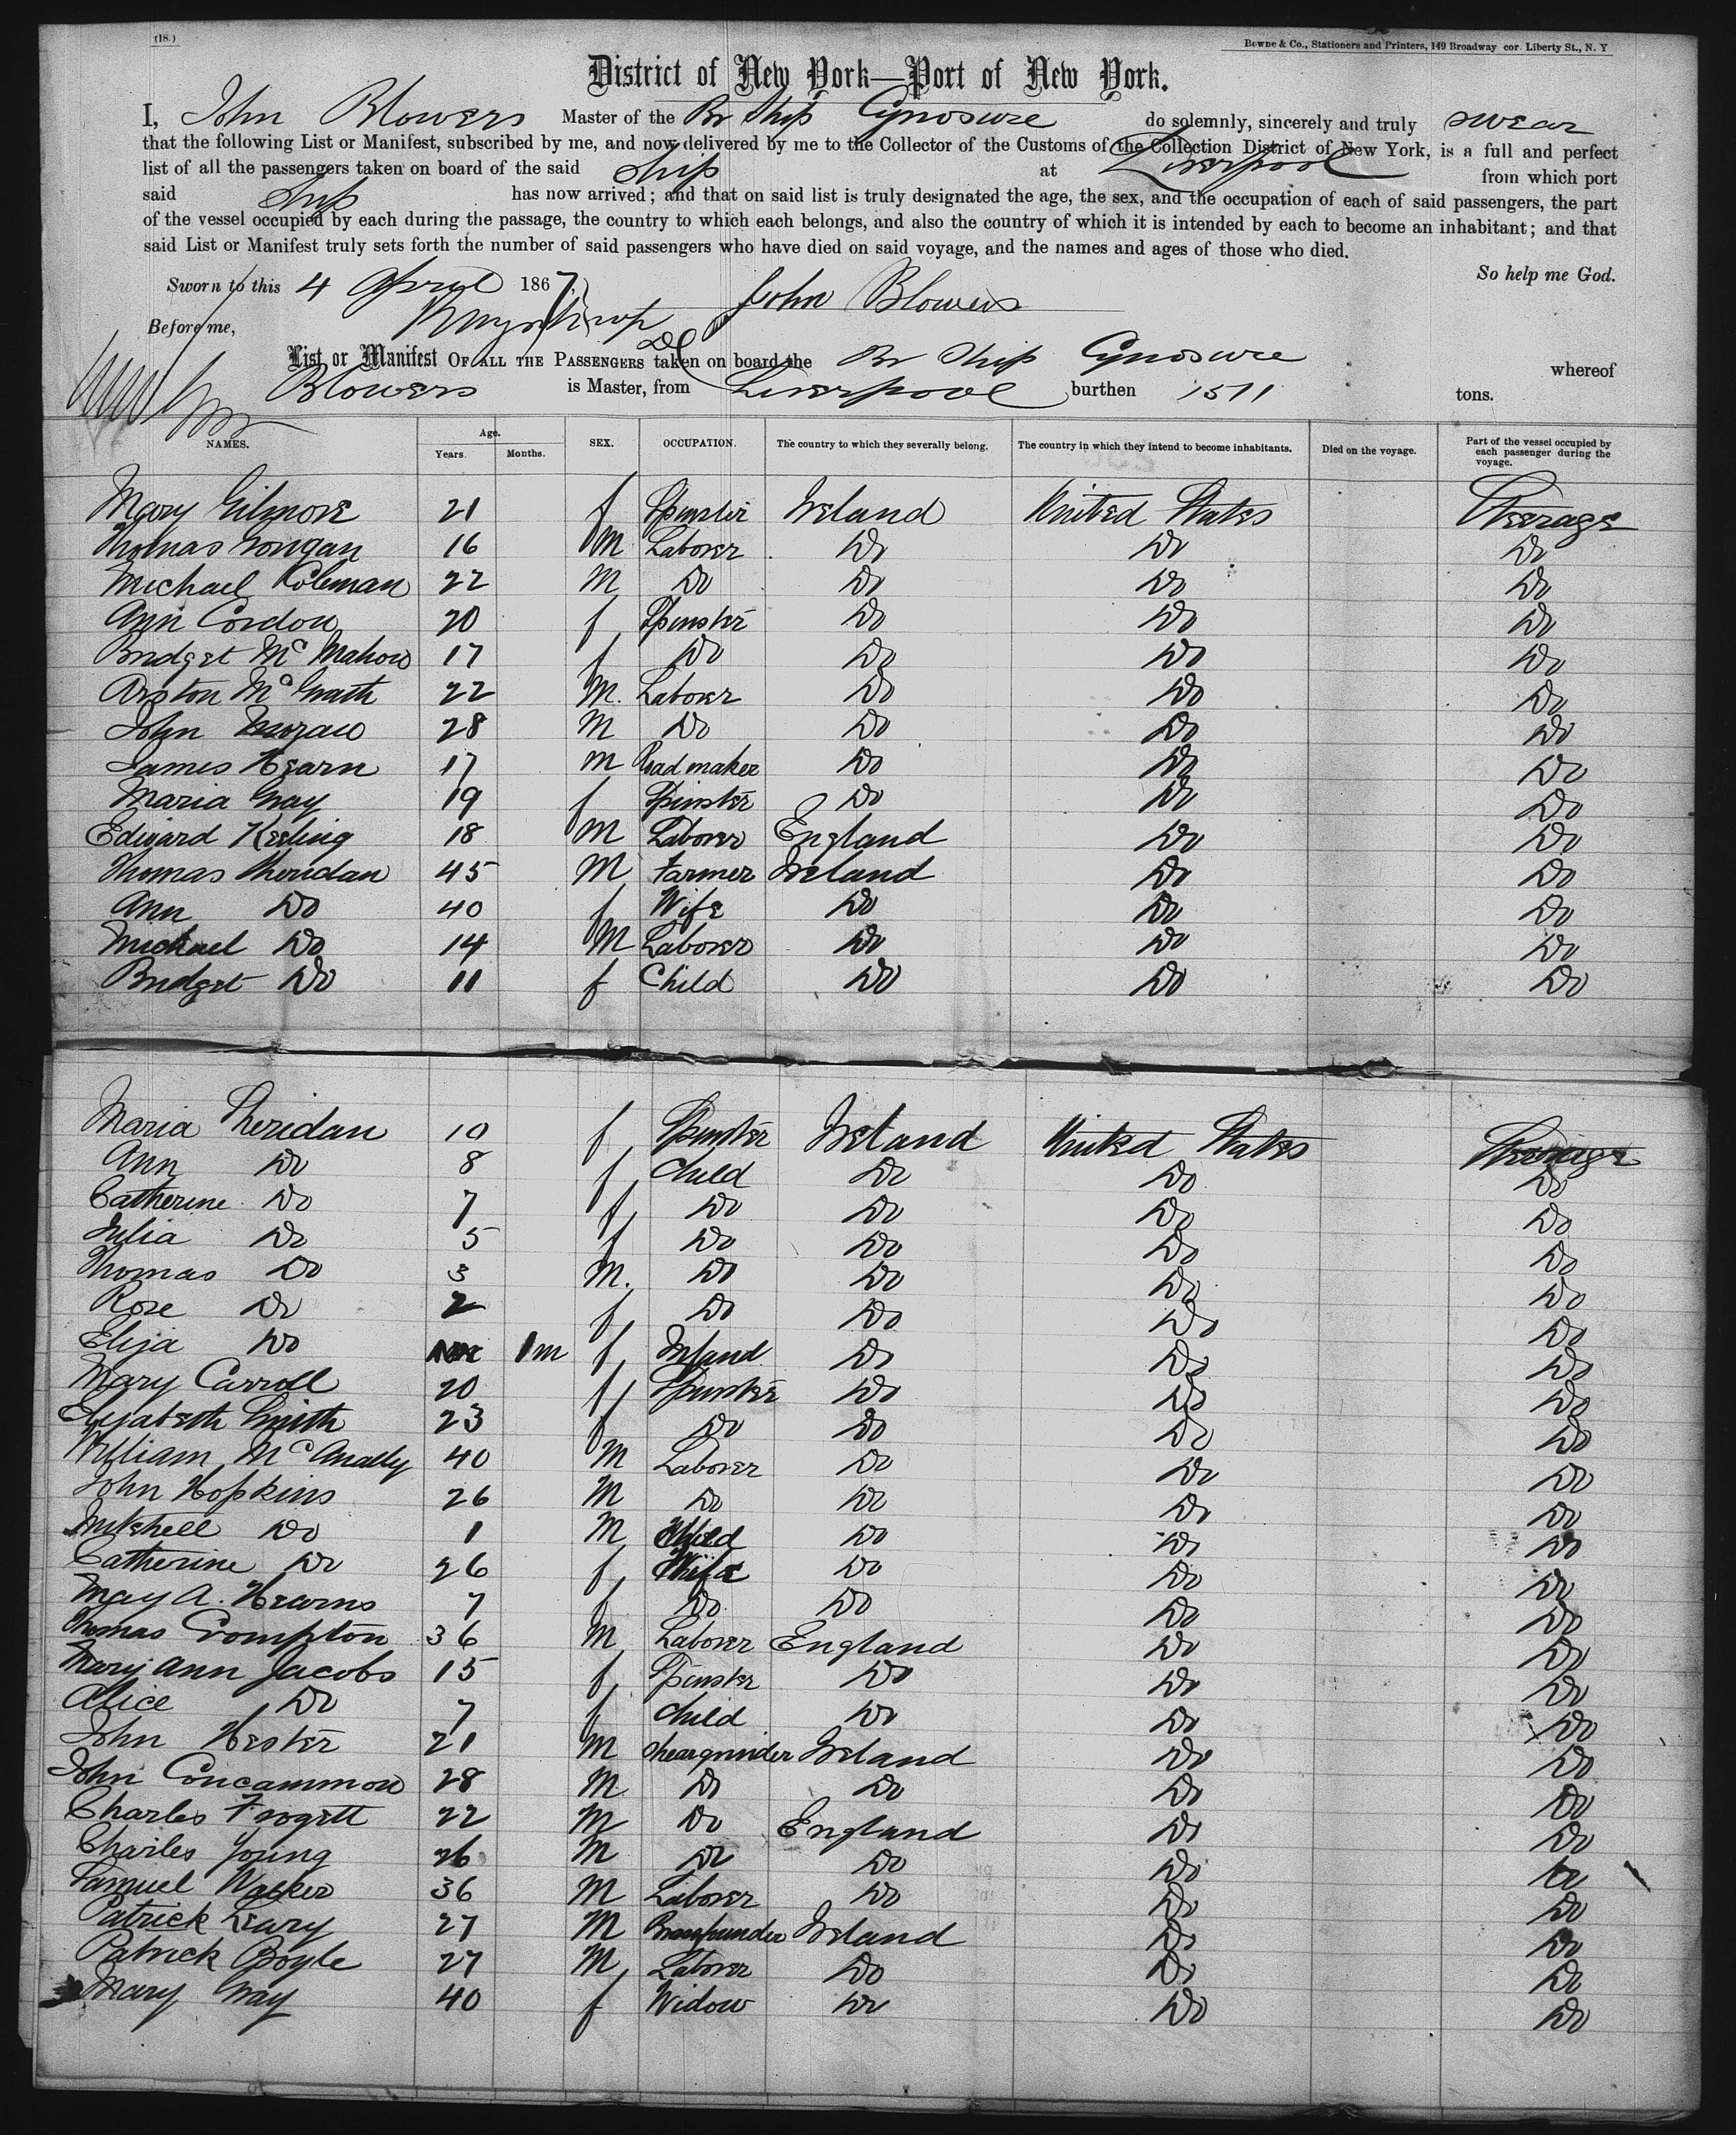 (18.)
Bowne & Co., Stationers and Printers, 149 Broadway cor. Liberty St., N. Y
District of New York—Port of New York.
I, John Blowers Master of the Br Ship Cynosure do solemnly, sincerely and truly swear
that the following List or Manifest, subscribed by me, and now delivered by me to the Collector of the Customs of the Collection District of New York, is a full and perfect
list of all the passengers taken on board of the said Ship at Liverpool from which port
said Ship has now arrived; and that on said list is truly designated the age, the sex, and the occupation of each of said passengers, the part
of the vessel occupied by each during the passage, the country to which each belongs, and also the country of which it is intended by each to become an inhabitant; and that
said List or Manifest truly sets forth the number of said passengers who have died on said voyage, and the names and ages of those who died.
So help me God.
Sworn to this 4 April 1867, John Blowers
Before me,
List or Manifest OF ALL THE PASSENGERS taken on board the Br Ship Cynosure whereof
Blowers is Master, from Liverpool burthen 1511 tons.
NAMES. Age. Years. Months. SEX. OCCUPATION. The country to which they severally belong. The country in which they intend to become inhabitants. Died on the voyage. Part of the vessel occupied by each passenger during the voyage.
Mary Gilmore 21 f Spinster Ireland United States Steerage
Thomas 16 M Laborer Do Do Do
Michael Coleman 22 M Do Do Do Do
Ann Condon 20 f Spinster Do Do Do
Bridget McMahon 17 f Do Do Do Do
McGrath 22 M. Laborer Do Do Do
John 28 M Do Do Do Do
James Hearn 17 M Do Do Do
Maria Gray 19 f Spinster Do Do Do
Edward Keeling 18 M Laborer England Do Do
Thomas Sheridan 45 M Farmer Ireland Do Do
Ann Do 40 f Wife Do Do Do
Michael Do 14 M Laborer Do Do Do
Bridget Do 11 f Child Do Do Do
Maria Sheridan 10 f Spinster Ireland United States Steerage
Ann Do 8 f Child Do Do Do
Catherine Do 7 f Do Do Do Do
Julia Do 5 f Do Do Do Do
Thomas Do 3 M. Do Do Do Do
Rose Do 2 f Do Do Do Do
Eliza Do 1m f Infand Do Do Do
Mary Carroll 20 f Spinster Do Do Do
Elizabeth Smith 23 f Do Do Do Do
William McAnally 40 M Laborer Do Do Do
John Hopkins 26 M Do Do Do Do
Mitchell Do 1 M Child Do Do Do
Catherine Do 26 f Wife Do Do Do
May A. Hearns 7 f Do Do Do Do
Thomas Crompton 36 M Laborer England Do Do
Mary Ann Jacobs 15 f Spinster Do Do Do
Alice Do 7 f Child Do Do Do
John Hester 21 M Sheargrinder Ireland Do Do
John Concammon 28 M Do Do Do Do
Charles Frogett 22 M Do England Do Do
Charles Young 26 M Do Do Do Do
Samuel Walker 36 M Laborer Do Do Do
Patrick Leary 27 M Ireland Do Do
Patrick Boyle 27 M Laborer Do Do Do
Mary Gray 40 f Widow Do Do Do